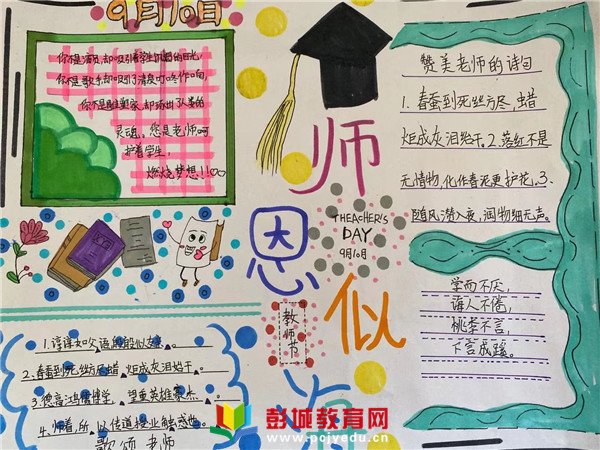 9月10日
你不是演员,却吸引着学生饥渴的目光,
你不是歌手,却吸引了清泉叮咚作叮响,
你不是雕塑家,却琢出了人类的
灵魂。您是老师呵
护着学生,
燃烧梦想!!
师
恩
似
海
THEACHER'S
DAY
9月10日
教师节
赞美老师的诗句
1.春蚕到死丝方尽,蜡
炬成灰泪始干。2.落红不是
无情物,化作春泥更护花,3、
随风潜入夜,润物细无声。
学而不厌,
诲人不倦,
桃李不言,
下言成蹊。
1.谆谆如父语,
2.春蚕到死丝方尽,蜡炬成灰泪始干。
3.德高鸿儒博学,望重英雄豪杰。
4.师者,所以传道授业解惑也。
歌颂老师
彭城教育网
www.pcjyedu.cn